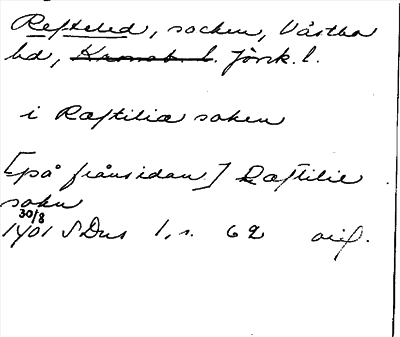 Refteled, socken, Västbo
hd, Kronob. l. Jönk. l.
i Ræftilia soken
[på frånsidan] Ræftilie
sokn
30/8
1401 SDns 1, s. 62 orig.